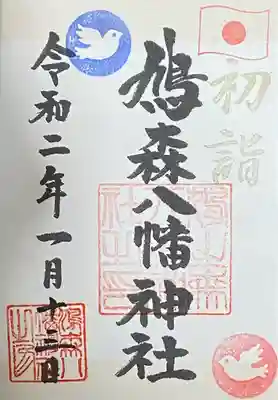 初詣
鳩森八幡神社
令和二年一月十三日